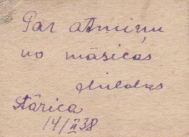 Par atmiņu
no māsiņas
Mildas
Stārica
14/II 38